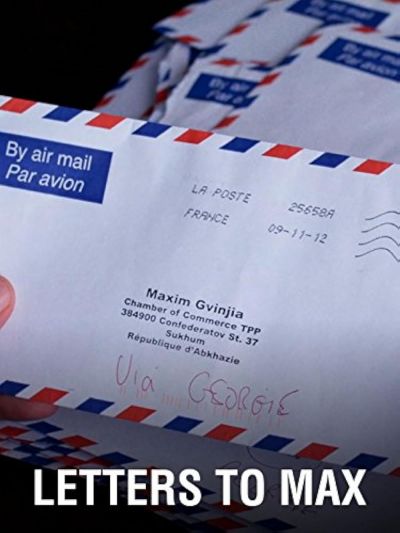 By air mail
Par avion
LA POSTE 25658A
FRANCE 09-11-12
Maxim Gvinjia
Chamber of Commerce TPP
384900 Confederatov St. 37
Sukhum
République d'Abkhazie
Via GEORGIE
LETTERS TO MAX